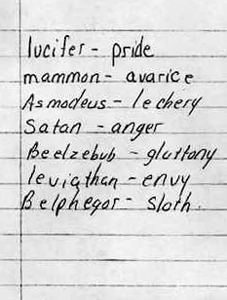 lucifer - pride
mammon - avarice
Asmodeus - lechery
Satan - anger
Beelzebub - gluttony
leviathan - envy
Belphegor - sloth.